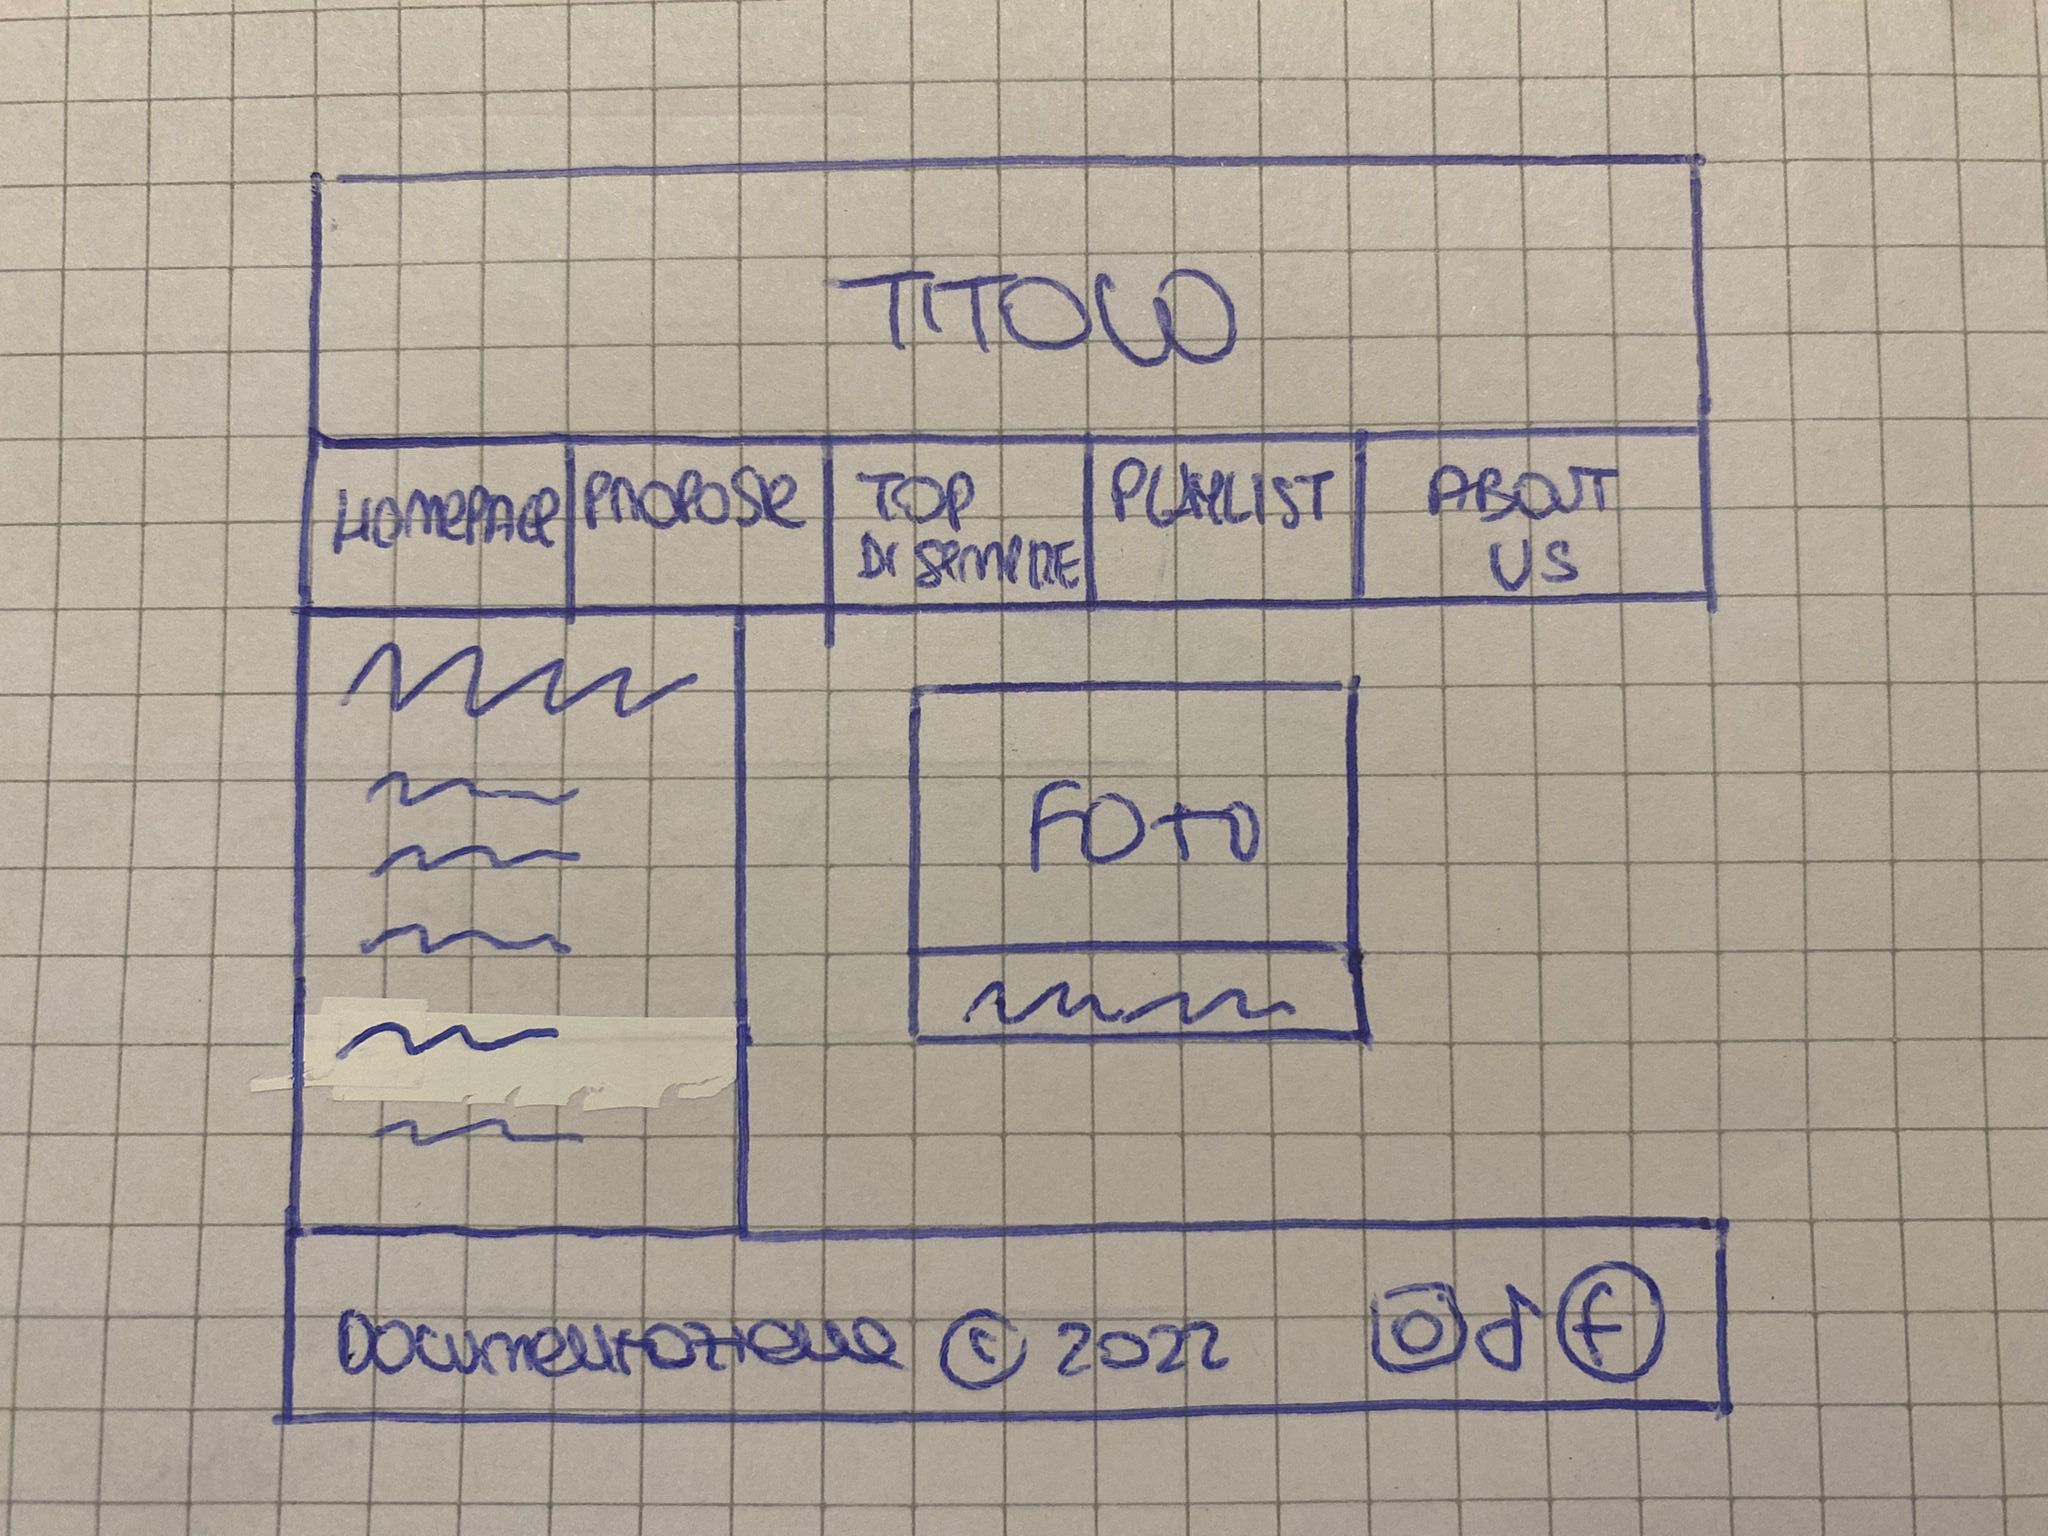 TITOLO
HOMEPAGE
PROPOSTE
TOP
DI SEMPRE
PLAYLIST
ABOUT
US
FOTO
DOCUMENTAZIONE © 2022
f